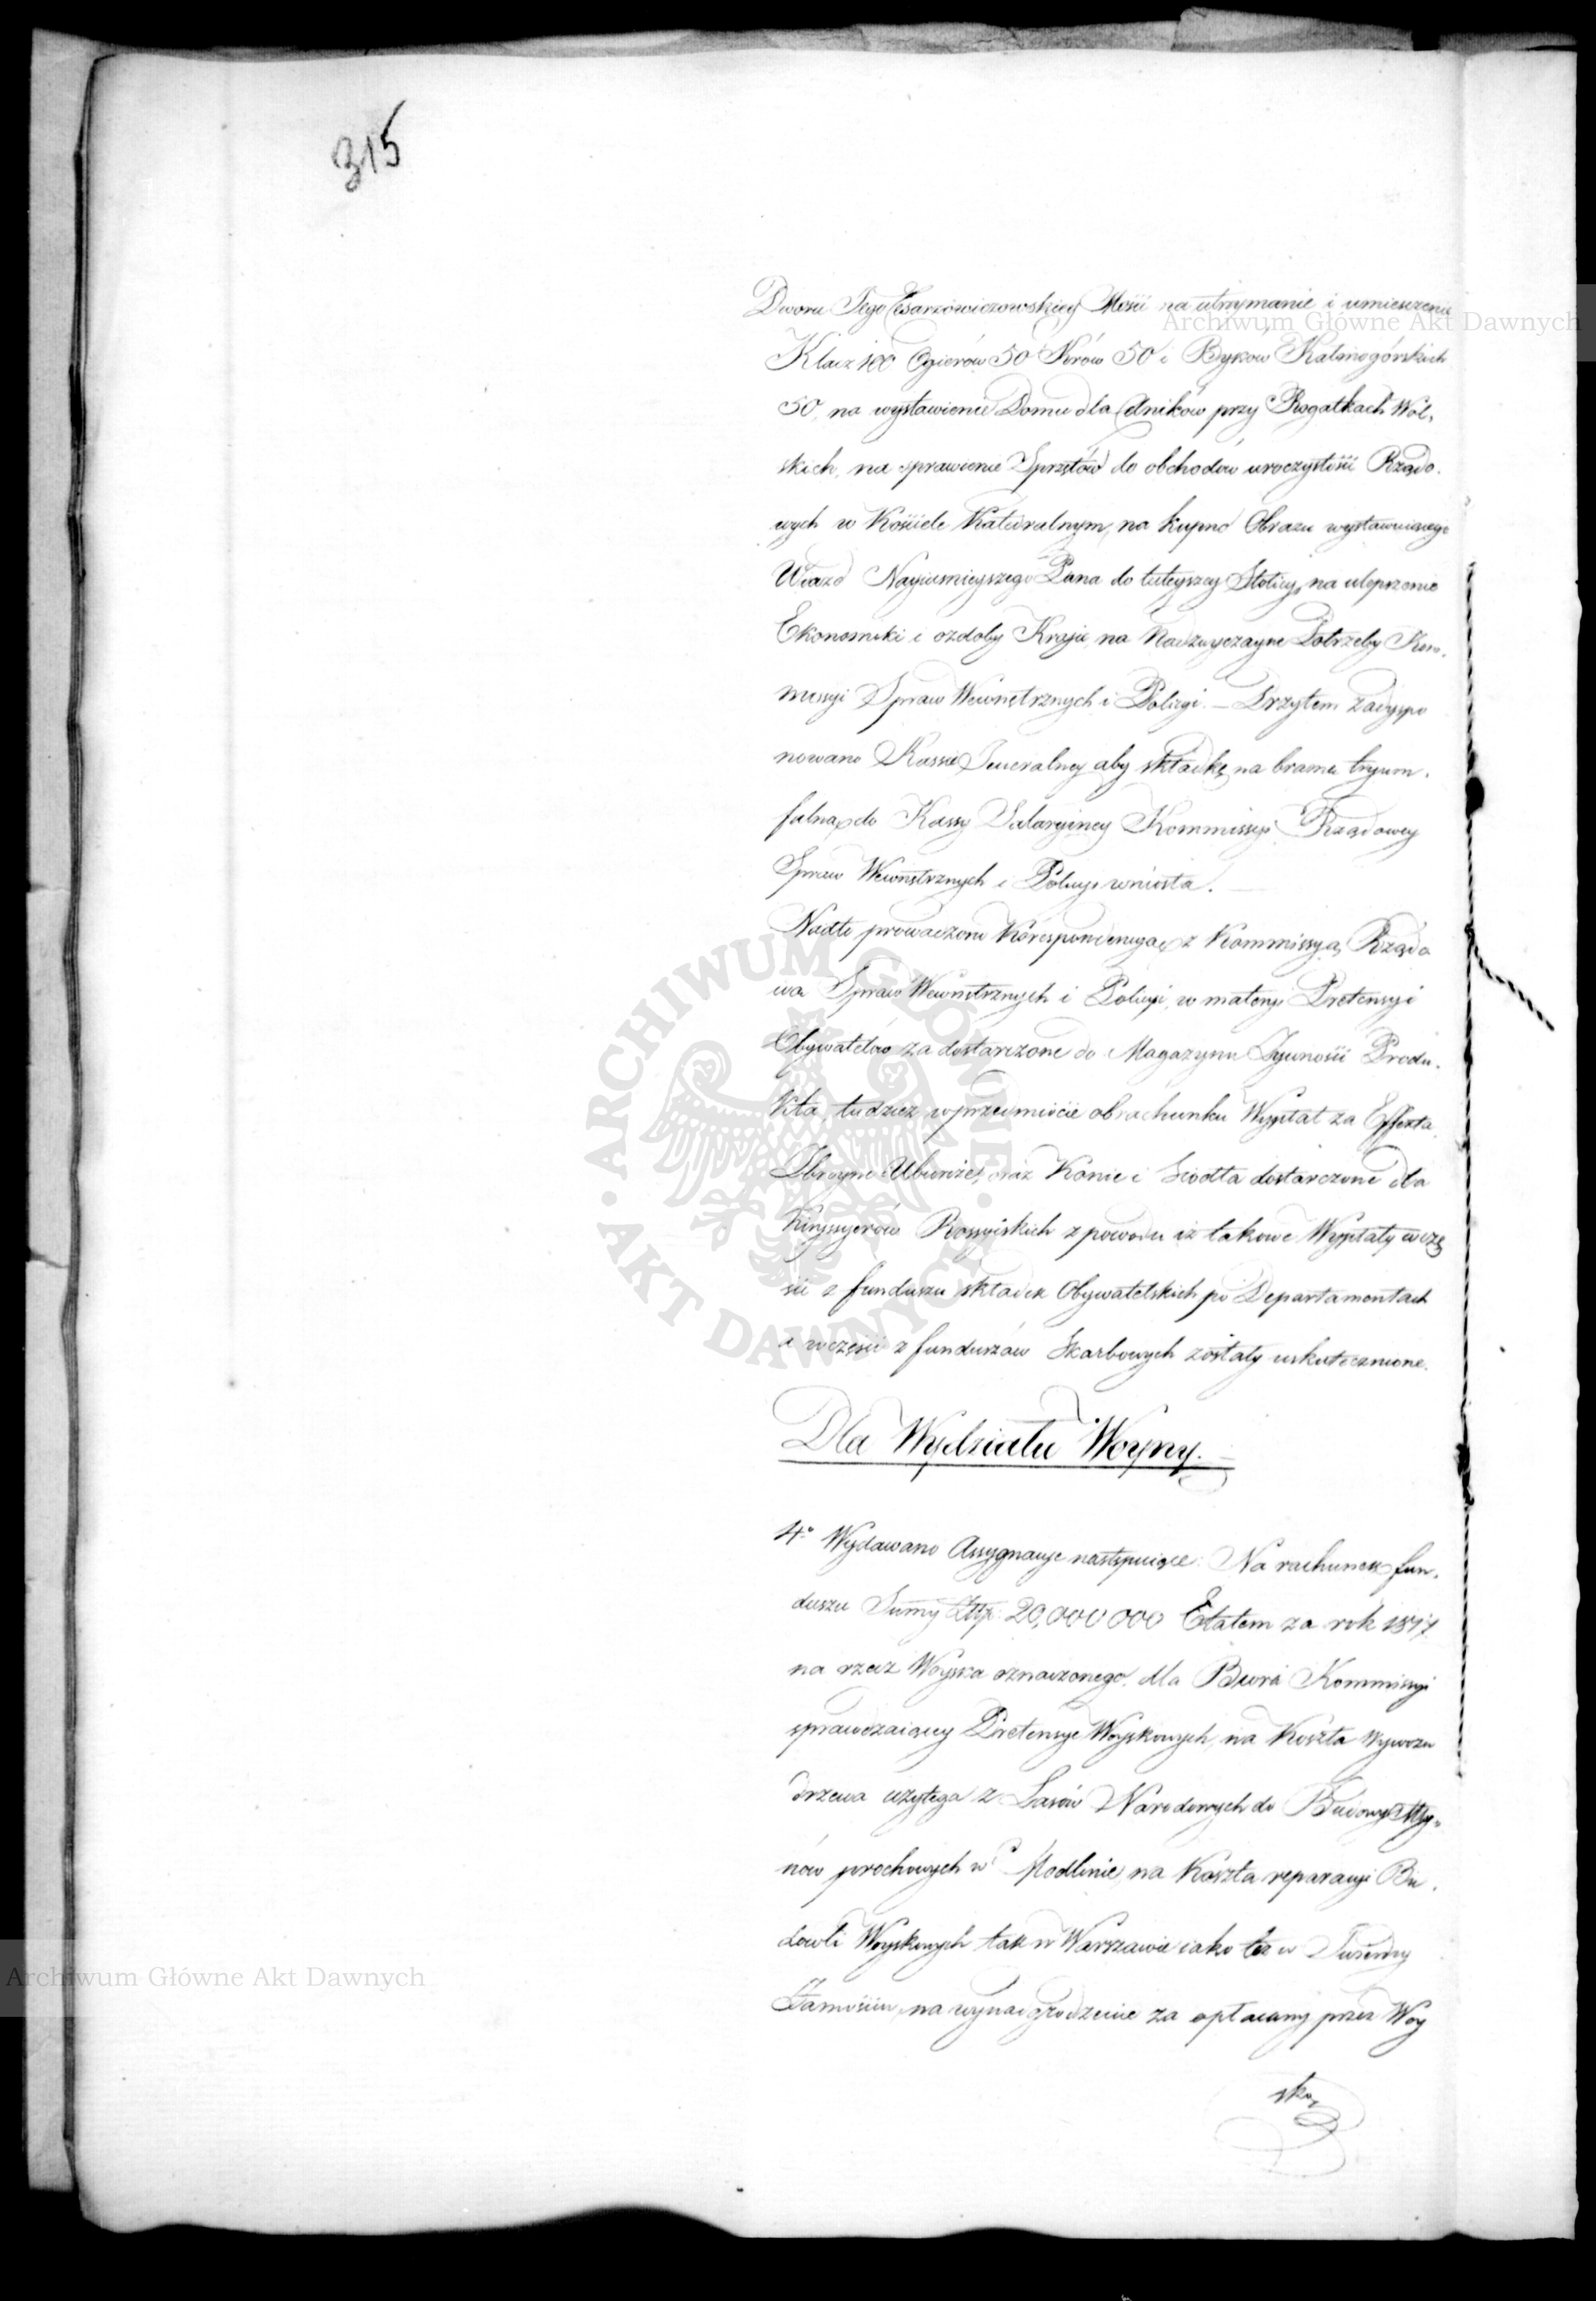 315
Dworu Jego Cesarzowiczowskiey Mości na utrzymanie i umieszczenie
Klacz 100 Ogierów 50 Krów 50 i Byków Kalmogórskich
50, na wystawienie Domu dla Celników przy Rogatkach Wol-
skich, na sprawienie Sprzętów do obchodów uroczystości Rządo-
wych w Kościele Katedralnym, na kupno Obrazu wystawuiącego
Wiazd Nayiaśnieyszego Pana do tuteyszey Stolicy, na ulepszenie
Ekonomiki i ozdoby Kraju, na Nadzwyczayne Potrzeby Kom-
missyi Spraw Wewnętrznych i Policyi. — Przytem zadyspo
nowano Kassie Jeneralney aby składkę na bramę tryum-
falną do Kassy Salaryiney Kommissyi Rządowey
Spraw Wewnętrznych i Policyi wniosła. —
Nadto prowadzono Korespondencyą z Kommissyą Rządo
wą Spraw Wewnętrznych i Policyi, w materyi Pretensyi
Obywatelów za dostarczone do Magazynu Żywności Produ-
kta, tudzież w przedmiocie obrachunku Wypłat za Effekta
Zbroyne Ubiorcze, oraz Konie i Siodła dostarczone dla
Kiryssyerów Rossyiskich z powodu iż takowe Wypłaty w czę
ści z funduszu składek Obywatelskich po Departamentach
a w części z funduszów Skarbowych zostały uskutecznione.
Dla Wydziału Woyny. —
4.° Wydawano Assygnacye następuiące: Na rachunek fun-
duszu Summy Złłp: 20,000 000 Etatem za rok 1817
na rzecz Woyska oznaczonego, dla Biura Kommissyi
sprawdzaiącey Pretensye Woyskowych, na Koszta Wywozu
drzewa użytego z Lasów Narodowych do Budowy Mły-
nów prochowych w Modlinie, na Koszta reparacyi Bu-
dowli Woyskowych tak w Warszawie iako też w Twierdzy
Zamościu, na wynadgrodzenie za opłacany przez Woy
sko
Archiwum Główne Akt Dawnych
Archiwum Główne Akt Dawnych
ARCHIWUM GŁÓWNE · AKT DAWNYCH ·